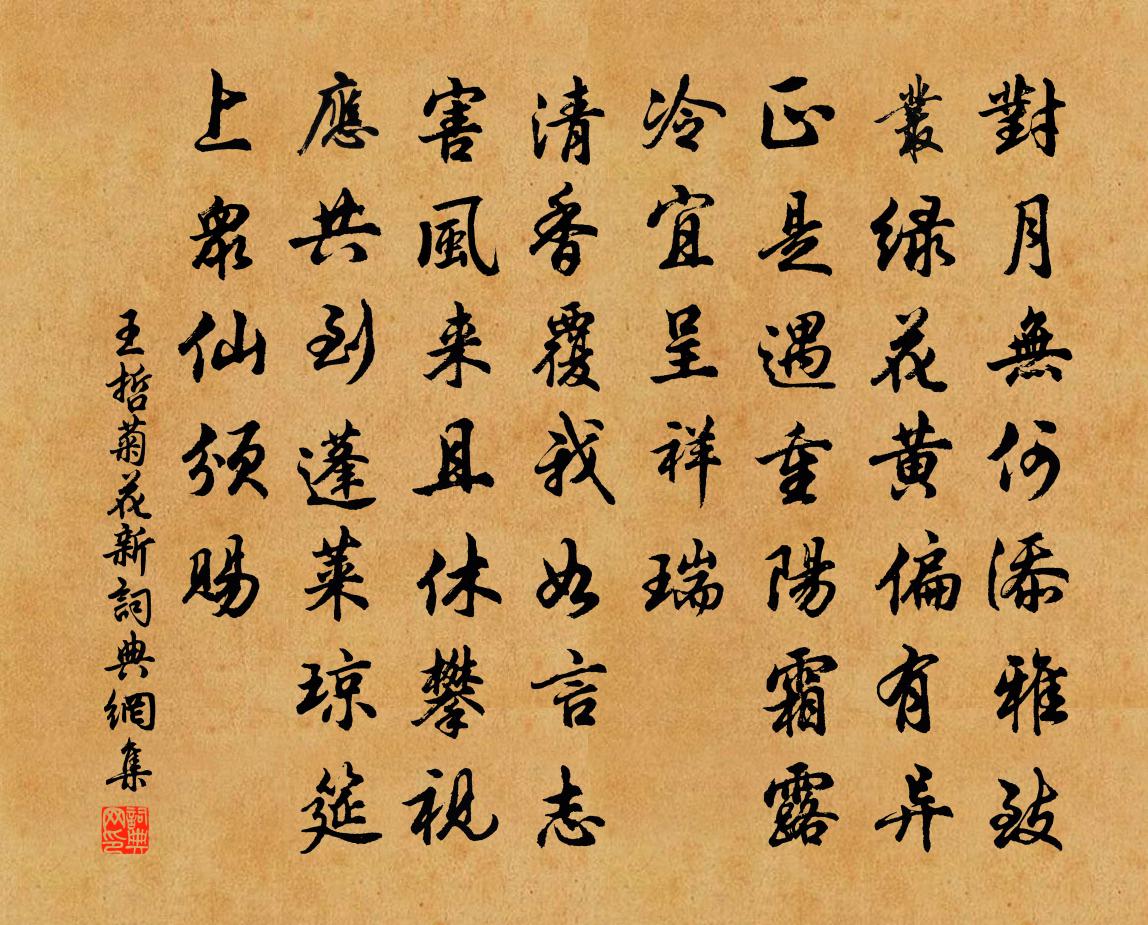 對月無何添雅致
叢緑花黄偏有异
正是遇重陽霜露
冷宜呈祥瑞
清香覆我如言志
害風来且休攀視
應共到蓬萊琼筵
上衆仙頒賜
王哲菊花新詞典網集
詞典网印